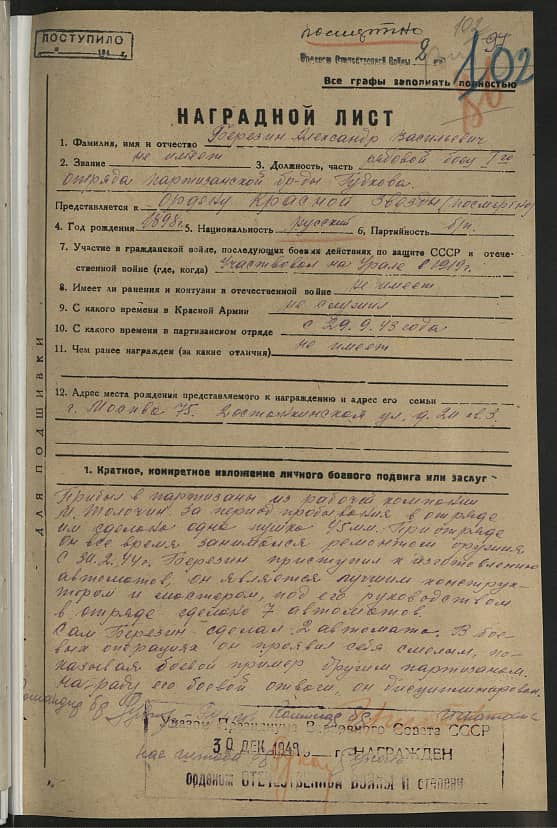 посмертно
102
97
ПОСТУПИЛО
Орденом Отечественной Войны 2
102
Все графы заполнять полностью
НАГРАДНОЙ ЛИСТ
1. Фамилия, имя и отчество Березин Александр Васильевич
2. Звание не имеет 3. Должность, часть рядовой боец 1го
отряда партизанской бр-ды Гудкова
Представляется к Ордену Красной Звезды (посмертно)
4. Год рождения 1898г. 5. Национальность русский 6. Партийность б/п.
7. Участие в гражданской войне, последующих боевых действиях по защите СССР и отече-
ственной войне (где, когда) Участвовал на Урале в 1919г.
8. Имеет ли ранения и контузии в отечественной войне не имеет
9. С какого времени в Красной Армии не служил
10. С какого времени в партизанском отряде с 29.9.43 года
11. Чем ранее награжден (за какие отличия) не имеет
12. Адрес места рождения представляемого к награждению и адрес его семьи
г. Москва 75. Останкинская ул. д. кв. 3.
ДЛЯ ПОДШИВКИ
1. Краткое, конкретное изложение личного боевого подвига или заслуг
Прибыл в партизаны из рабочей компании
м. Толочин. За период пребывания в отряде
им сделано одна пушка 45 мм. При отряде
он все время занимался ремонтом оружия
С 30.2.44г. Березин приступил к изготовлению
автоматов, он является лучшим конструк-
тором и мастером, под его руководством
в отряде сделано 7 автоматов.
Сам Березин сделал 2 автомата. В бое-
вых операциях он проявил себя смелым, по-
казывая боевой пример другим партизанам.
Наряду его боевой отваги, он дисциплинирован.
Командир бр Комиссар бр
Указом Президиума Верховного Совета СССР
30 ДЕК 1948 г. НАГРАЖДЕН
Орденом ОТЕЧЕСТВЕННАЯ ВОЙНА II степени